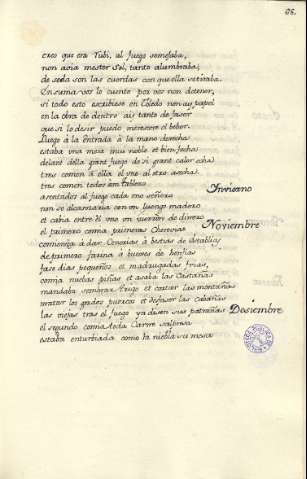 98.
creo que era Rubi, al fuego semejaba,
non avia mester Sol, tanto alumbraba;
de seda son las cuerdas con que ella se tiraba.
En suma vos lo cuento por vos non detener,
si todo esto escribiese en Toledo non ay papel
en la obra de dentro ais tanto de faser
que si lo desir puedo meresere el beber.
Luego à la entrada à la mano derecha
estaba una mesa muy noble et bien fecha
delante della grant fuego de si grant calor echa
tres comen à ella el uno al otro aecha.
tres comen todos con tablero
asentados al fuego cada uno señero
non se alcansarian con un luengo madero
et cabria entre el uno en dinero
el primero comia primeras Cherevias
Comienza à dar Cenorias à bestias de establias
de primero farina à bueyes de herbias
hase dias pequeños et madrugadas frias,
comia nuchas piñas et asaba las Castañas
mandaba sembrar trigo et cortar las montañas
matar los gordos puercos et desfaser las cabañas
las viejas tras el fuego ya disen sus patrañas
el segundo comia toda Carne salpresa
estaba enturbiada como la niebla su mesa
Invierno
Noviembre
Desiembre